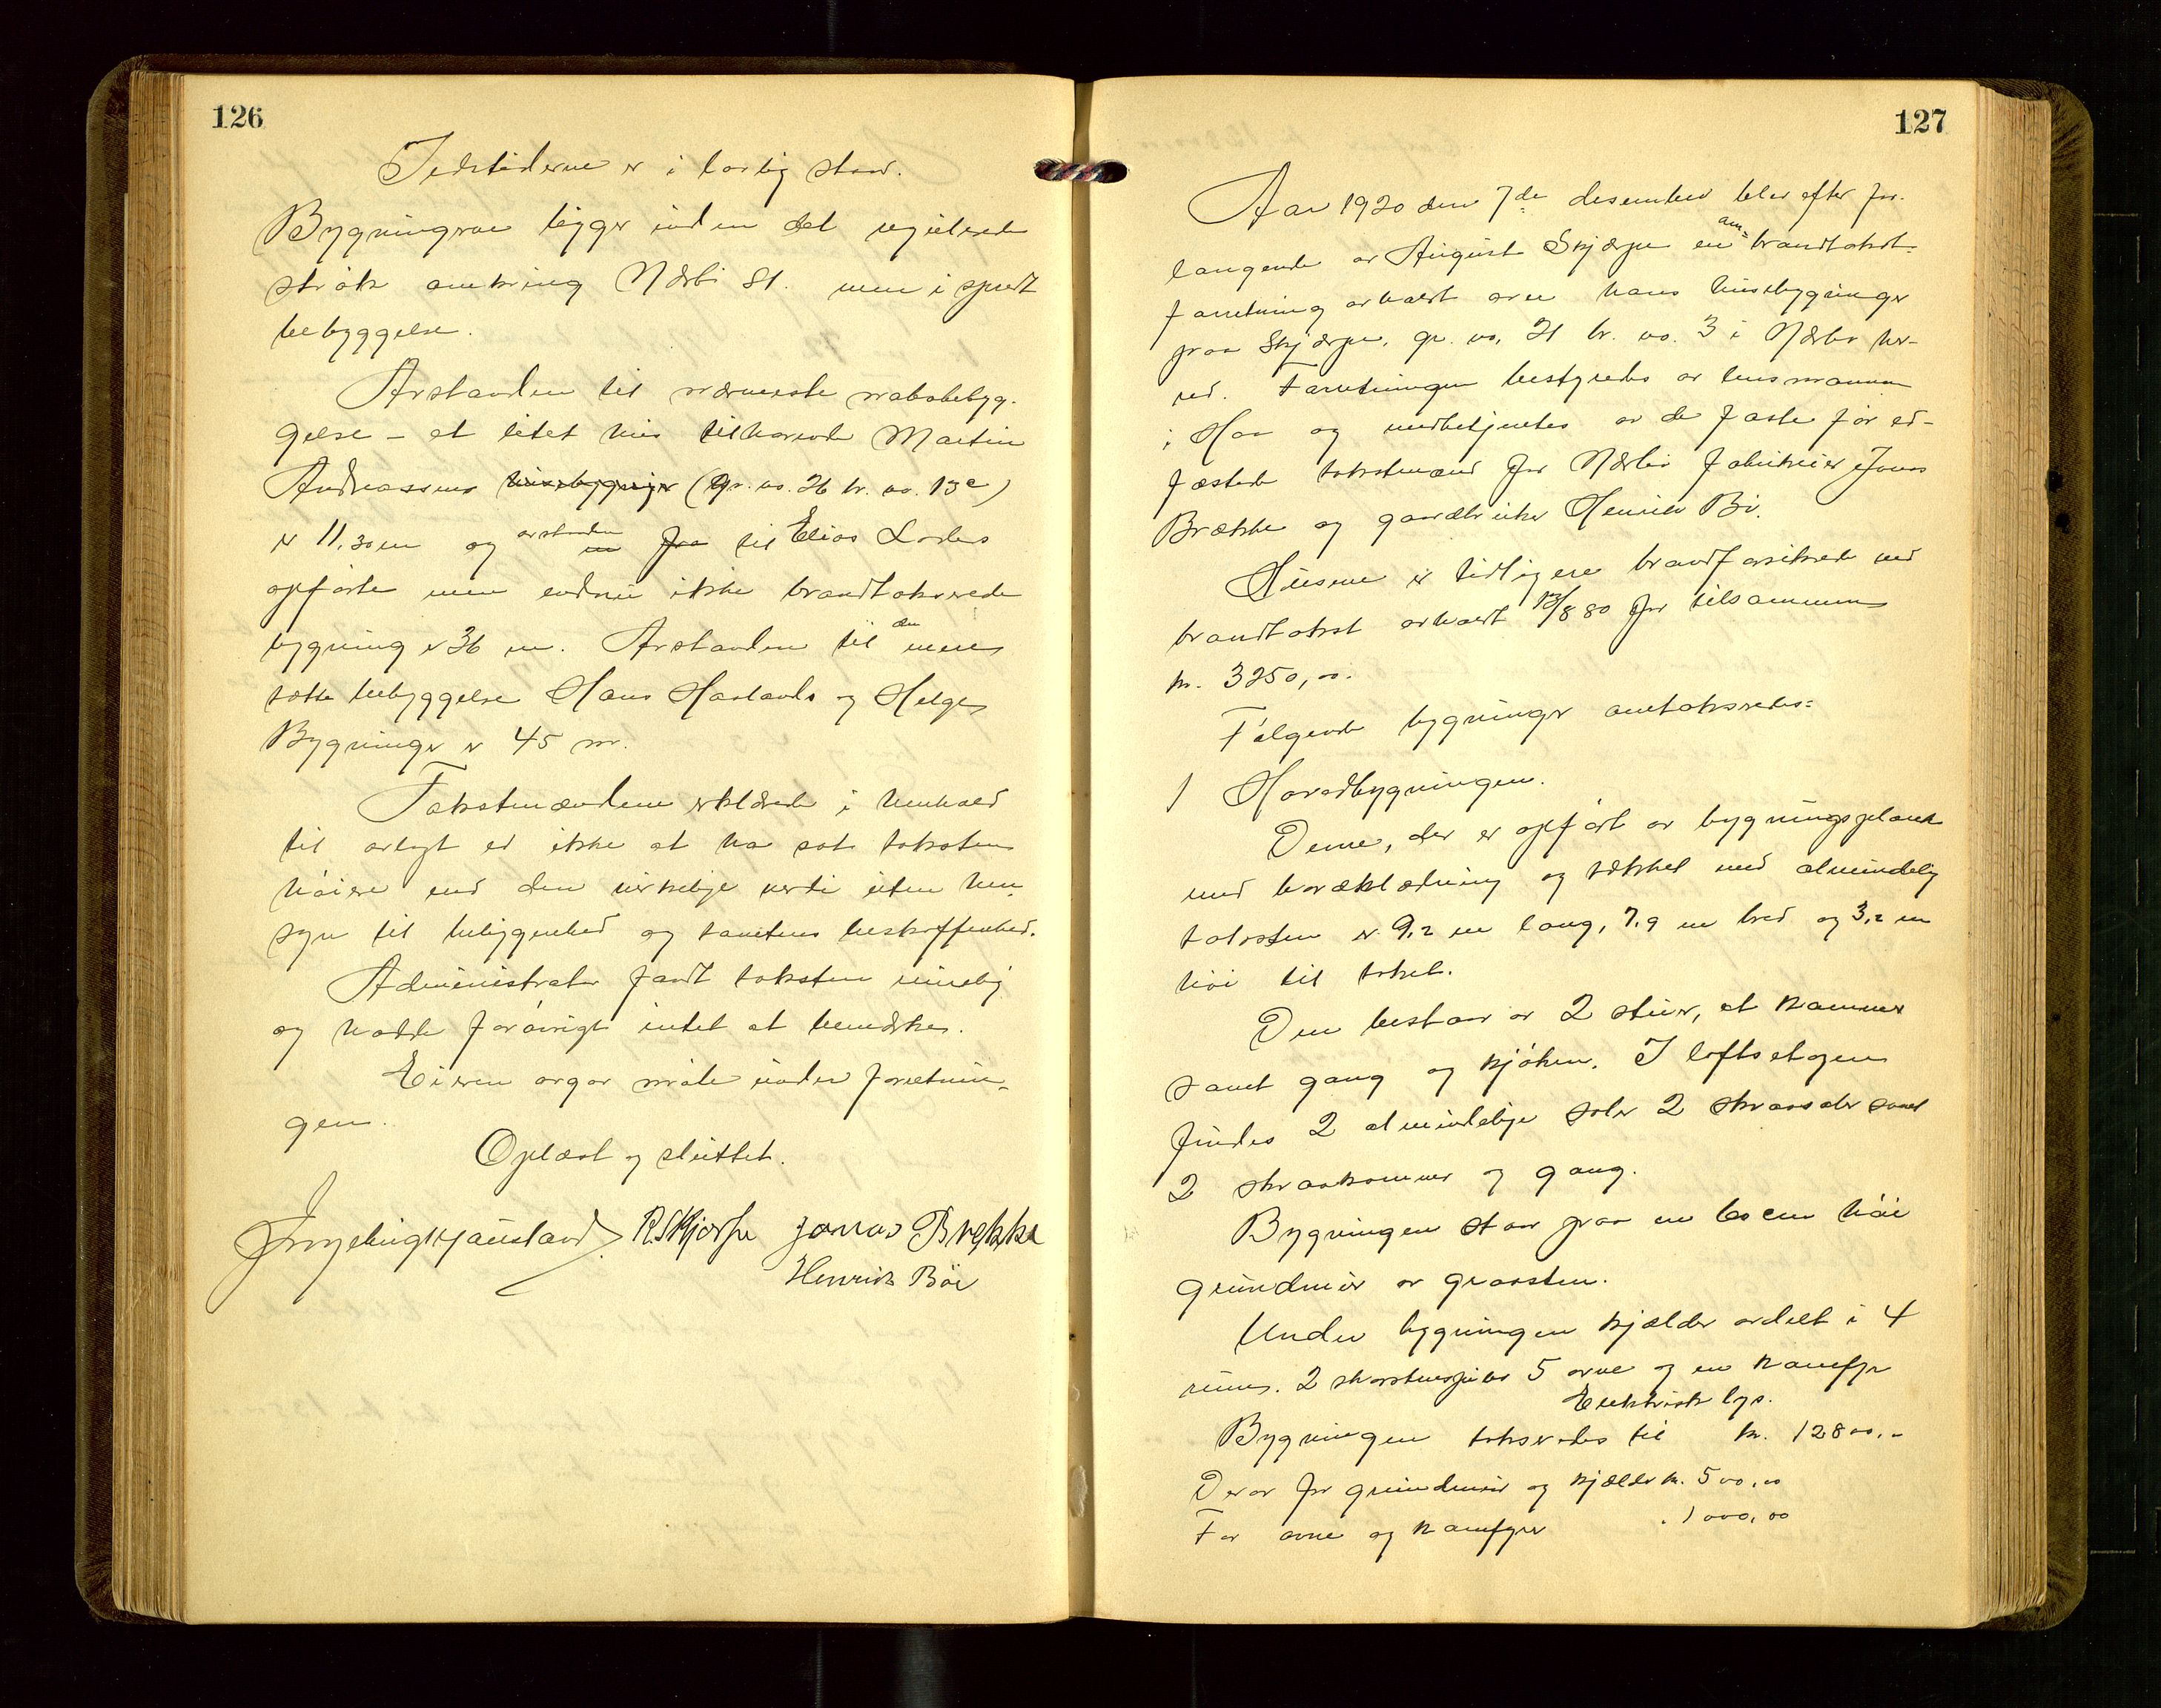 126
Ildstederne er i lovlig stand.
Bygningerne ligger inden det regulerede
strøk omkring Nærbø St. men i spredt
bebyggelse.
Avstanden til nærmeste nabobebyg-
gelse - et litet hus tilhørende Martin
Andreassens husebygninger (Gr. no. 26 br. no. 13e)
er 11,30 m og avstanden en fra til Elias Lodes
opførte men endnu ikke brandtakserede
bygning er 36 m. Avstanden til den mere
tætte bebyggelse Hans Haslands og Helges
Bygninger er 45 m.
Takstmændene erklærede i henhold
til avlagt ed ikke at ha sat taksten
høiere end den virkelige verdi uten hen-
syn til beliggenhed og tomtens beskaffenhed.
Administrator fandt taksten rimelig
og hadde forøvrigt intet at bemerke.
Eieren avgav møte under forretnin-
gen.
Oplæst og sluttet.
R. Skjærpe Jonas Brekke
Henrik Bøe
127
Aar 1920 den 7de desember blev efter for-
langende av August Skjærpe en om- brandtakst-
forretning avholdt over hans husebygninger
paa Skjærpe, gr. no. 21 br. no. 3 i Nærbø her-
red. Forretningen bestyredes av lensmannen
i Haa og medbetjentes av de faste før ed-
fæstede takstmænd for Nærbø fabrikeier Jonas
Brække og gaardbruker Henrik Bø.
Husene er tidligere brandforsikrede ved
brandtakst avholdt 13/8 80 for tilsammen
kr. 3250,00.
Følgende bygninger omtakseredes:
1 Hovedbygningen.
Denne, der er opført av bygningsplank
med bordklædning og tækket med almindelig
taksten er 9,2 m lang, 7,9 m bred og 3,2 m
høi til taket.
Den bestaar av 2 stuer, et kammer
samt gang og kjøken. I loftsetagen
findes 2 almindelige saler 2 skraasaler samt
2 skraakammer og gang.
Bygningen staar paa en 60 cm høi
grundmur av graasten.
Under bygningen kjælder avdelt i 4
rums. 2 skorstenspiber 5 ovne og en komfyr
Elektrisk lys.
Bygningen takseredes til kr. 12800,-
Derav for grundmur og kjælder kr. 500,00
For ovne og komfyrer " 1000,00